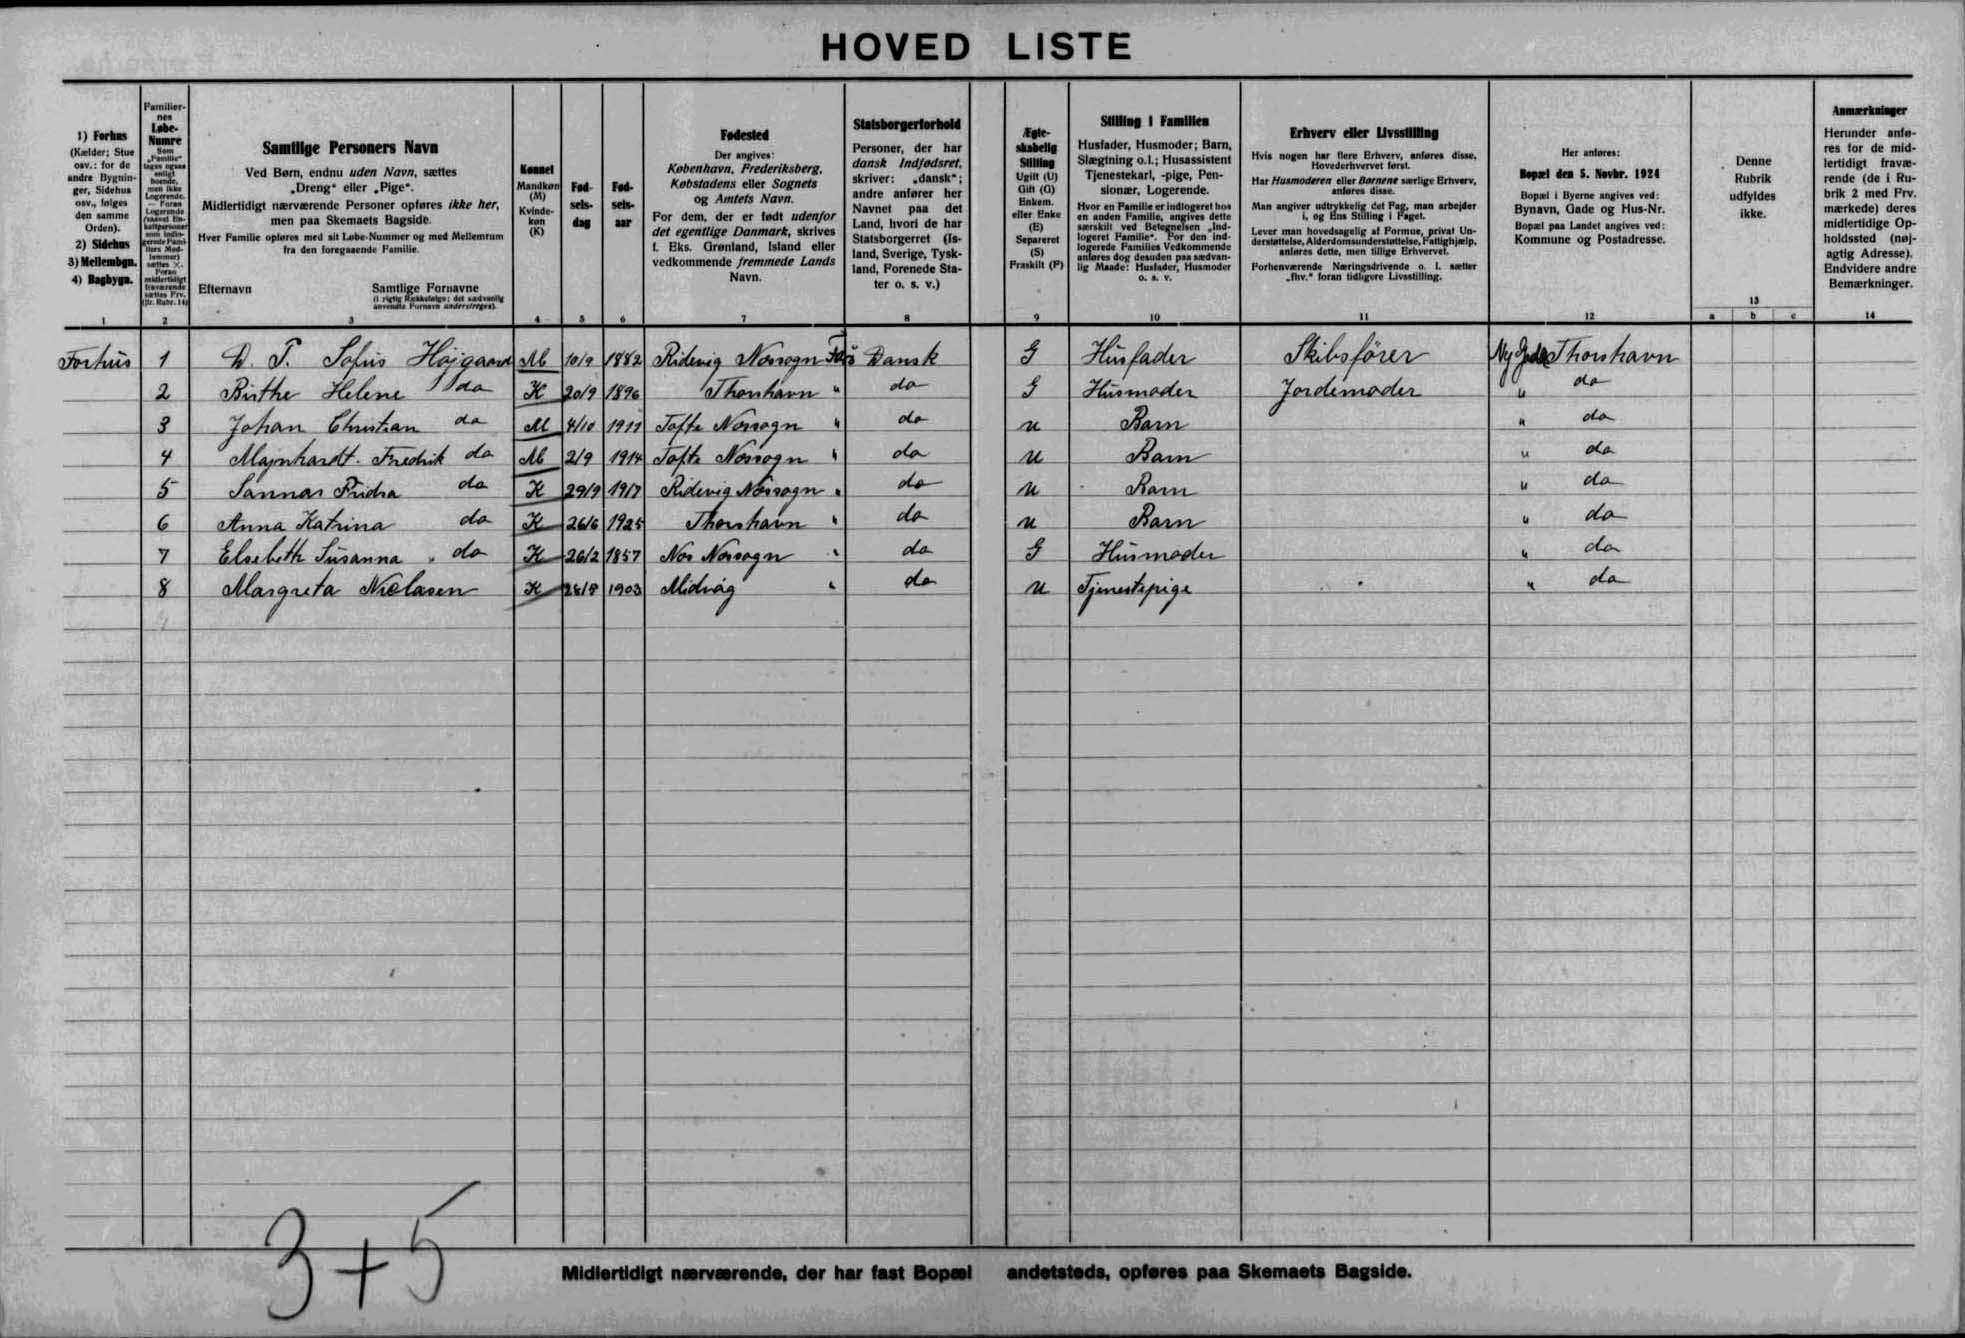 HOVED LISTE
1) Forhus
(Kælder; Stue
osv.: for de
andre Bygnin-
ger, Sidehus
osv., følges
den samme
Orden).
2) Sidehus
3) Mellembgn.
4) Bagbygn.
1
Familier-
nes
Løbe-
Numre
Som
„Familie"
tages ogsaa
enligt
boende,
men ikke
Logerende.
— Foran
Logerende
(saavel En-
keltpersoner
som indlo-
gerede Fami-
liers Med-
lemmer)
sættes ×.
Foran
midlertidigt
fraværende
sættes Frv.
(jfr. Rubr. 14)
2
Samtlige Personers Navn
Ved Børn, endnu uden Navn, sættes
„Dreng" eller „Pige".
Midlertidigt nærværende Personer opføres ikke her,
men paa Skemaets Bagside.
Hver Familie opføres med sit Løbe-Nummer og med Mellemrum
fra den foregaaende Familie.
Efternavn Samtlige Fornavne
(i rigtig Rækkefølge; det sædvanlig
anvendte Fornavn understreges).
3
Kønnet
Mandkøn
(M)
Kvinde-
køn
(K)
4
Fød-
sels-
dag
5
Fød-
sels-
aar
6
Fødested
Der angives:
København, Frederiksberg,
Købstadens eller Sognets
og Amtets Navn.
For dem, der er født udenfor
det egentlige Danmark, skrives
f. Eks. Grønland, Island eller
vedkommende fremmede Lands
Navn.
7
Statsborgerforhold
Personer, der har
dansk Indfødsret,
skriver: „dansk";
andre anfører her
Navnet paa det
Land, hvori de har
Statsborgerret (Is-
land, Sverige, Tysk-
land, Forenede Sta-
ter o. s. v.)
8
Ægte-
skabelig
Stilling
Ugift (U)
Gift (G)
Enkem.
eller Enke
(E)
Separeret
(S)
Fraskilt (F)
9
Stilling i Familien
Husfader, Husmoder; Barn,
Slægtning o.l.; Husassistent
Tjenestekarl, -pige, Pen-
sionær, Logerende.
Hvor en Familie er indlogeret hos
en anden Familie, angives dette
særskilt ved Betegnelsen „Ind-
logeret Familie". For den ind-
logerede Families Vedkommende
anføres dog desuden paa sædvan-
lig Maade: Husfader, Husmoder
o. s. v.
10
Erhverv eller Livsstilling
Hvis nogen har flere Erhverv, anføres disse,
Hovederhvervet først.
Har Husmoderen eller Børnene særlige Erhverv,
anføres disse.
Man angiver udtrykkelig det Fag, man arbejder
i, og Ens Stilling i Faget.
Lever man hovedsagelig af Formue, privat Un-
derstøttelse, Alderdomsunderstøttelse, Fattighjælp,
anføres dette, men tillige Erhvervet.
Forhenværende Næringsdrivende o. l. sætter
„fhv." foran tidligere Livsstilling.
11
Her anføres:
Bopæl den 5. Novbr. 1924
Bopæl i Byerne angives ved:
Bynavn, Gade og Hus-Nr.
Bopæl paa Landet angives ved:
Kommune og Postadresse.
12
Denne
Rubrik
udfyldes
ikke.
13
a b c
Anmærkninger
Herunder anfø-
res for de mid-
lertidigt fravæ-
rende (de i Ru-
brik 2 med Frv.
mærkede) deres
midlertidige Op-
holdssted (nøj-
agtig Adresse).
Endvidere andre
Bemærkninger.
14
Forhus 1 D. P. Sofus Højgaard M 10/9 1882 Ridevig Nessogn Dansk G Husfader Skibsfører Thorshavn
2 Birthe Helene do K 20/9 1896 Thorshavn " do G Husmoder Jordemoder " do
3 Johan Christian do M 4/10 1911 Tofte Nessogn " do U Barn " do
4 Majnhardt Fredrik do M 2/9 1914 Tofte Nessogn " do U Barn " do
5 Sannas Fridra do K 29/9 1917 Ridevig Nessogn " do U Barn " do
6 Anna Katrina do K 26/6 1925 Thorshavn " do U Barn " do
7 Elsebeth Susanna do K 26/2 1857 Nes Nessogn " do G Husmoder " do
8 Margreta Niclasen K 28/8 1903 Midvåg " do U Tjenestepige " do
3+5
Midlertidigt nærværende, der har fast Bopæl andetsteds, opføres paa Skemaets Bagside.